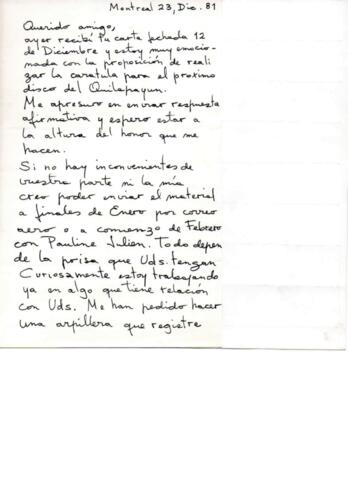 Montreal 23, Dic. 81
Querido amigo,
ayer recibí tu carta fechada 12
de Diciembre y estoy muy emocio-
nada con la proposición de reali
zar la caratula para el proximo
disco del Quilapayun.
Me apresuro en enviar respuesta
afirmativa y espero estar a
la altura del honor que me
hacen.
Si no hay inconvenientes de
vuestra parte ni la mía
creo poder enviar el material
a finales de Enero por correo
aereo o a comienzo de Febrero
con Pauline Julien. Todo depen
de la prisa que Uds. tengan
Curiosamente estoy trabajando
ya en algo que tiene relación
con Uds. Me han pedido hacer
una arpillera que registre